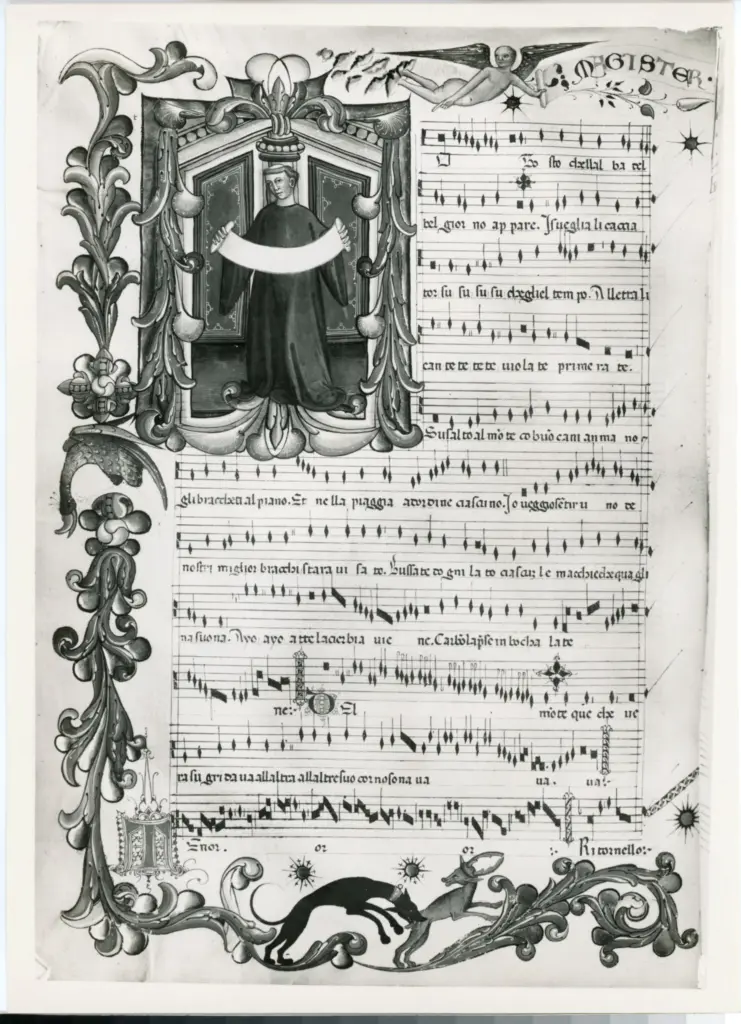 MAGISTER
To sto chellal ba tel
del gior no ap pare. Isueglia li caccia
tor su su su su chegliel tem po. Alletta li
can te te te te uiola te prime ra te.
Sus alto al mōte co buō cani an ma no
gli bracchetti al piano. Et ne lla piaggia ad ordine ciascuno. Io ueggio sētir u no de
nostri miglior bracchi star a ui sa to. Bussate do gni la to ciascū le macchie che qua gli
na suona. Ayo ayo a tte la cierbia uie ne. Carbō la pse in bocha la te
ne: El mōte que che ue
ra su gri da ua all altra all altre suo corno sona ua ua. ua:
Enor. or or :. Ritornello: